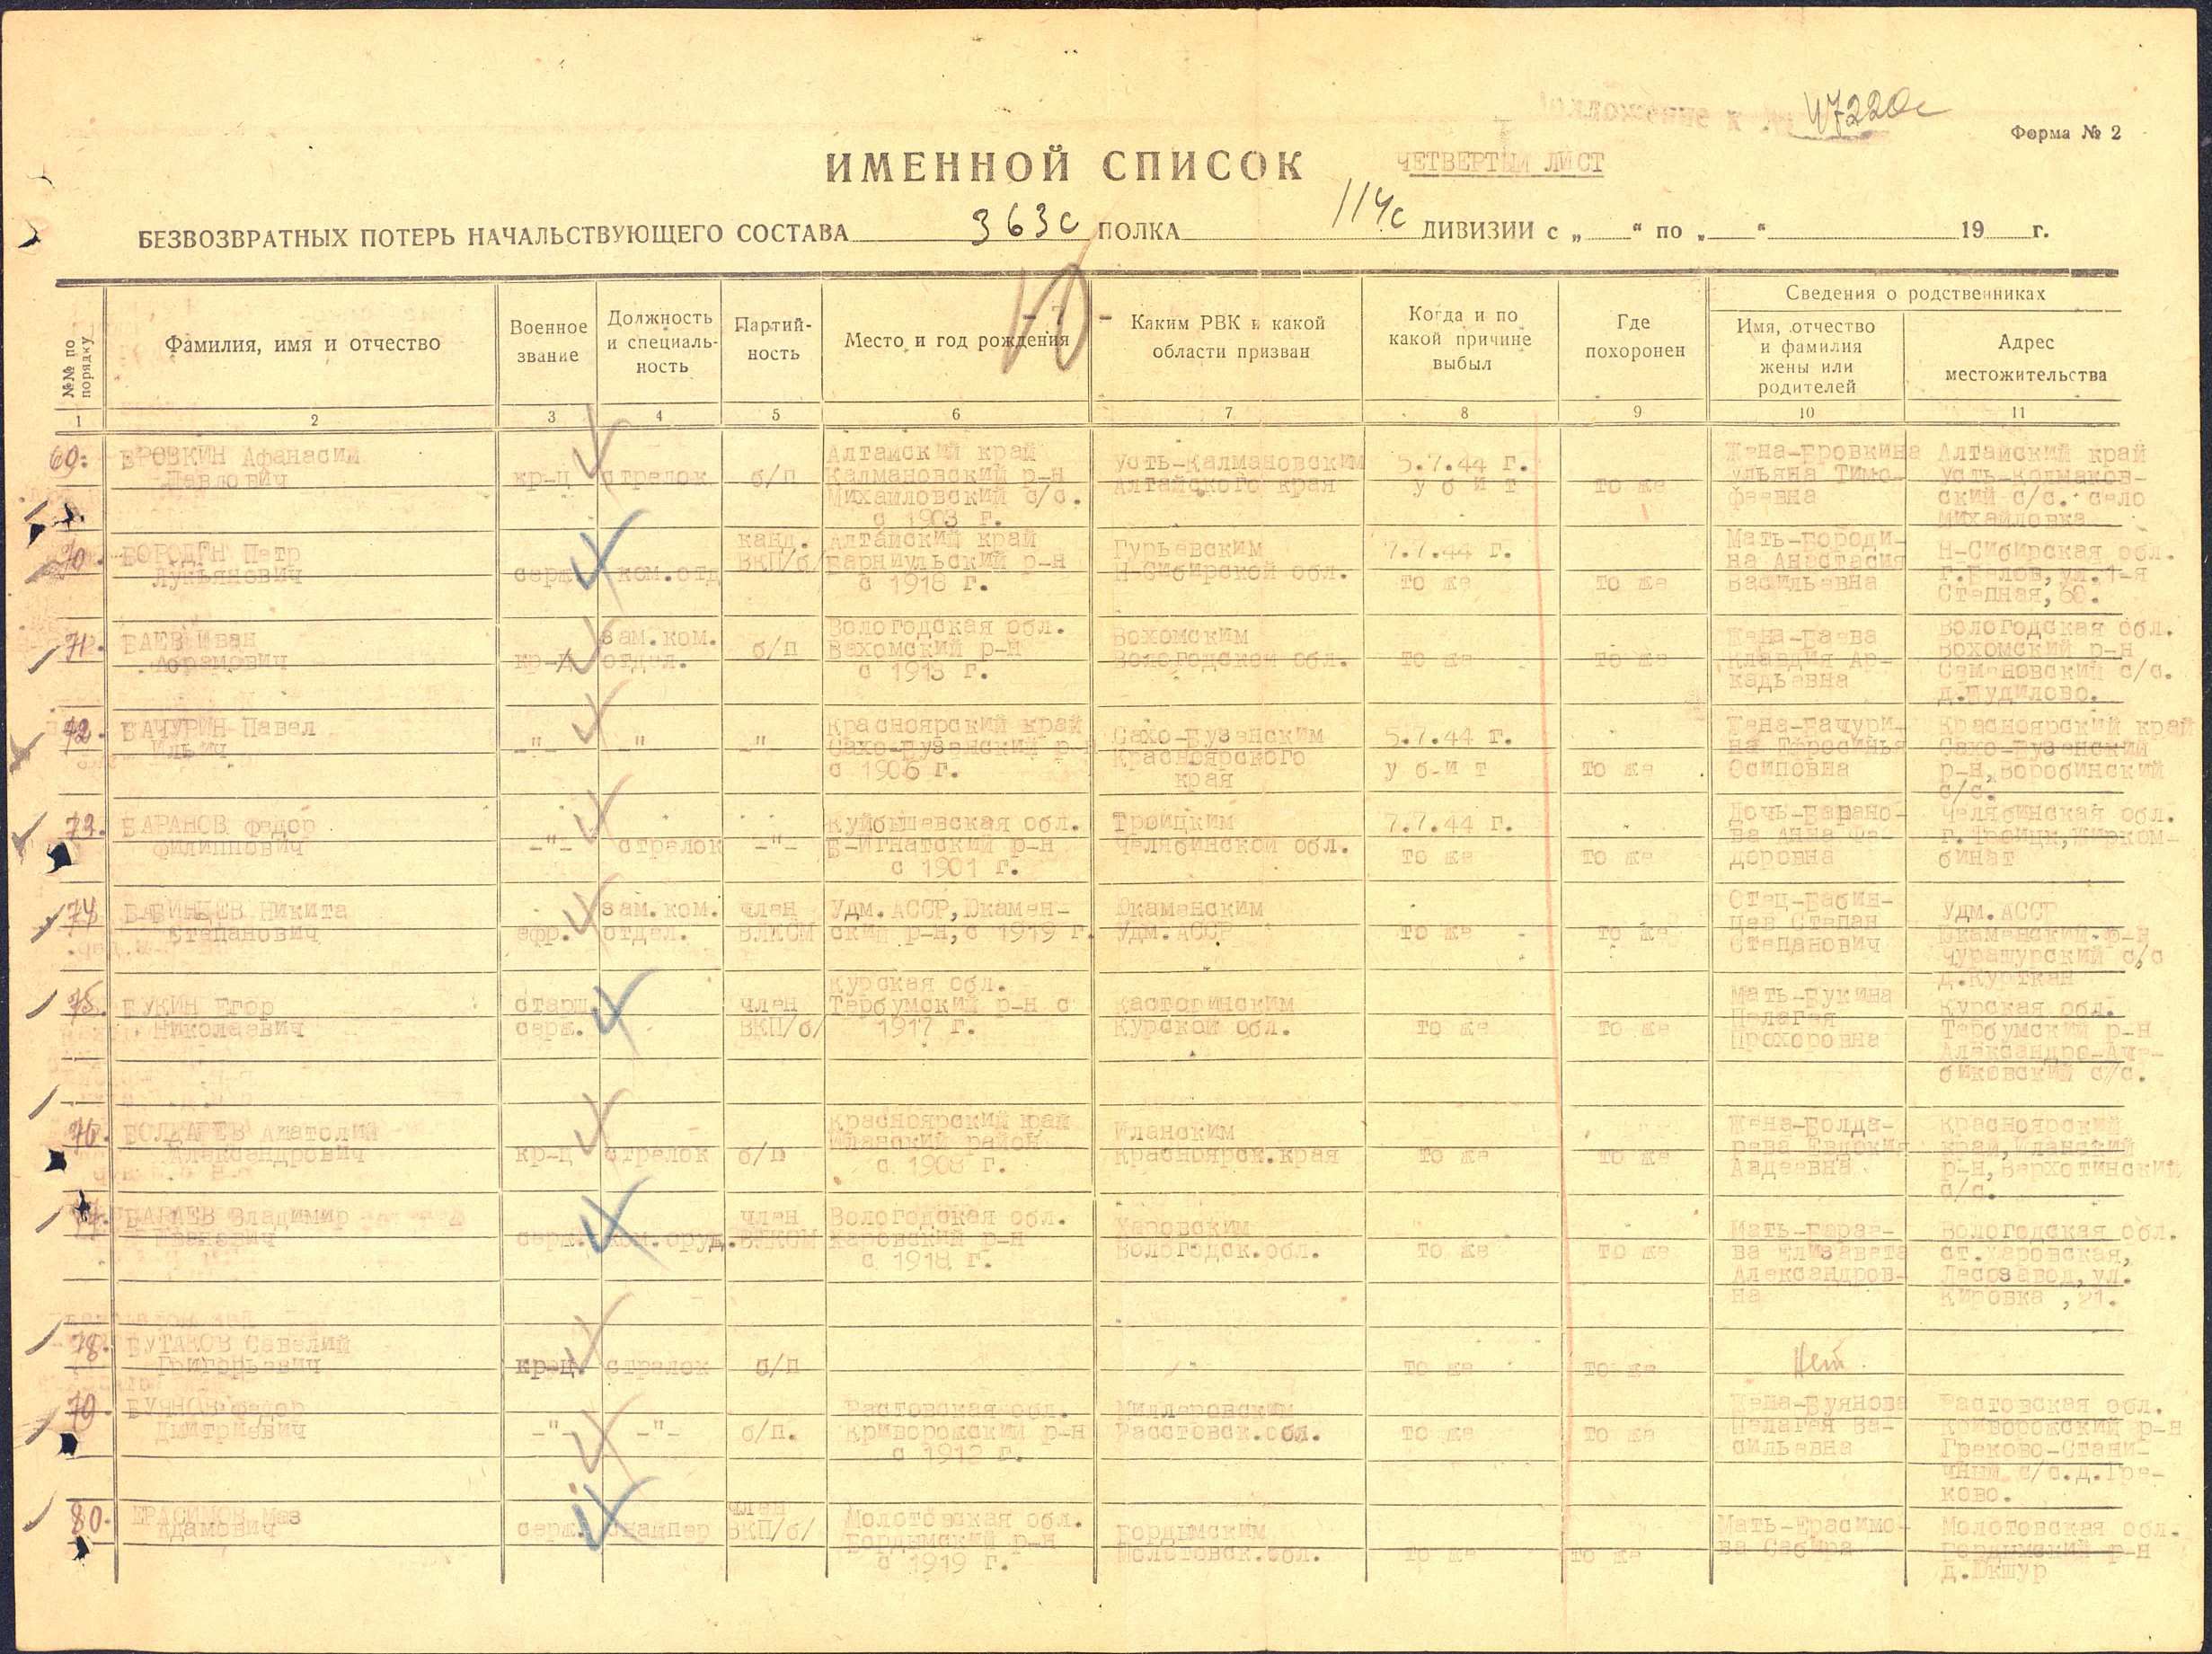 47220с
Форма № 2
ИМЕННОЙ СПИСОК
ЧЕТВЕРТЫЙ ЛИСТ
БЕЗВОЗВРАТНЫХ ПОТЕРЬ НАЧАЛЬСТВУЮЩЕГО СОСТАВА 363с ПОЛКА 114с ДИВИЗИИ с „ “ по „ “ 19 г.
№№ по порядку
Фамилия, имя и отчество
Военное звание
Должность и специальность
Партийность
Место и год рождения
Каким РВК и какой области призван
Когда и по какой причине выбыл
Где похоронен
Сведения о родственниках
Имя, отчество и фамилия жены или родителей
Адрес местожительства
1 2 3 4 5 6 7 8 9 10 11
69. ЕРОВКИН Афанасий
Павлович
кр-ц
стрелок
б/п
Алтайский край
Калмановский р-н
Михайловский с/с.
с 1903 г.
Усть-Калмановским
Алтайского края
5.7.44 г.
у б и т
то же
Жена-Еровкина
Ульяна Тимо-
феевна
Алтайский край
Усть-Колмаков-
ский с/с. село
Михайловка
70. БОРОДИН Петр
Лукьянович
серж.
ком.отд
канд.
ВКП/б/
Алтайский край
Барнаульский р-н
с 1918 г.
Гурьевским
Н-Сибирской обл.
7.7.44 г.
то же
то же
Мать-Бороди-
на Анастасия
Васильевна
Н-Сибирская обл.
г.Белов, ул.1-я
Степная, 60.
71. БАЕВ Иван
Абрамович
кр-ц
зам.ком.
отдел.
б/п
Вологодская обл.
Вохомский р-н
с 1913 г.
Вохомским
Вологодской обл.
то же
то же
Жена-Баева
Клавдия Ар-
кадьевна
Вологодская обл.
Вохомский р-н
Семеновский с/с.
д.Шудилово.
72. БАЧУРИН Павел
Ильич
-"-
-"
-"
Красноярский край
Сахо-Бузенский р-н
с 1906 г.
Сахо-Бузенским
Красноярского
края
5.7.44 г.
у б-и т
то же
Жена-Бачури-
на Ефросинья
Осиповна
Красноярский край
Сахо-Бузенский
р-н, Воробинский
с/с.
73. БАРАНОВ Федор
Филиппович
-"-
стрелок
-"-
Куйбышевская обл.
Б-Игнатский р-н
с 1901 г.
Троицким
Челябинской обл.
7.7.44 г.
то же
то же
Дочь-Барано-
ва Анна Фе-
доровна
Челябинская обл.
г.Троицк, Жирком-
бинат
74 БАБИНЦЕВ Никита
Степанович
ефр.
зам.ком.
отдел.
член
ВЛКСМ
Удм.АССР, Юкамен-
ский р-н, с 1919 г.
Юкаменским
Удм.АССР
то же
то же
Отец-Бабин-
цев Степан
Степанович
Удм.АССР
Юкаменский р-н
Чурашурский с/с
д.Курткан
75. БУКИН Егор
Николаевич
старш.
серж.
член
ВКП/б/
Курская обл.
Тербумский р-н с
1917 г.
Касторинским
Курской обл.
то же
то же
Мать-Букина
Пелагея
Прохоровна
Курская обл.
Тербумский р-н
биковский с/с.
76. БОЛДАРЕВ Анатолий
Александрович
кр-ц
стрелок
б/п
Красноярский край
Иланский район
с 1908 г.
Иланским
Красноярск.края
то же
то же
Жена-Болда-
рева Евдокия
Авдеевна
Красноярский
край, Иланский
р-н, Верхотинский
с/с.
77. БАРАЕВ Владимир
Иванович
серж.
ком.оруд.
член
ВЛКСМ
Вологодская обл.
Харовский р-н
с 1918 г.
Харовским
Вологодск.обл.
то же
то же
Мать-Барае-
ва Елизавета
Александров-
на
Вологодская обл.
ст.Харовская,
Лесозавод, ул.
Кировка , 21.
78. БУТАКОВ Савелий
Григорьевич
кр-ц.
стрелок
б/п
то же
то же
Нет.
79. БУЯНОВ Федор
Дмитриевич
-"-
-"-
б/п.
Растовская обл.
Криворожский р-н
с 1912 г.
Миллеровским
Расстовск.обл.
то же
то же
Жена-Буянова
Пелагея Ва-
сильевна
Растовская обл.
Криворожский р-н
Греково-Стани-
чный с/с.д.Гре-
ково.
80. ЕРАСИМОВ Маз
Адамович
серж.
снайпер
член
ВКП/б/
Молотовская обл.
Бордымский р-н
с 1919 г.
Бордымским
Молотовск.обл.
то же
то же
Мать-Ерасимо-
ва Сабира
Молотовская обл.
Бордымский р-н
д.Юкшур